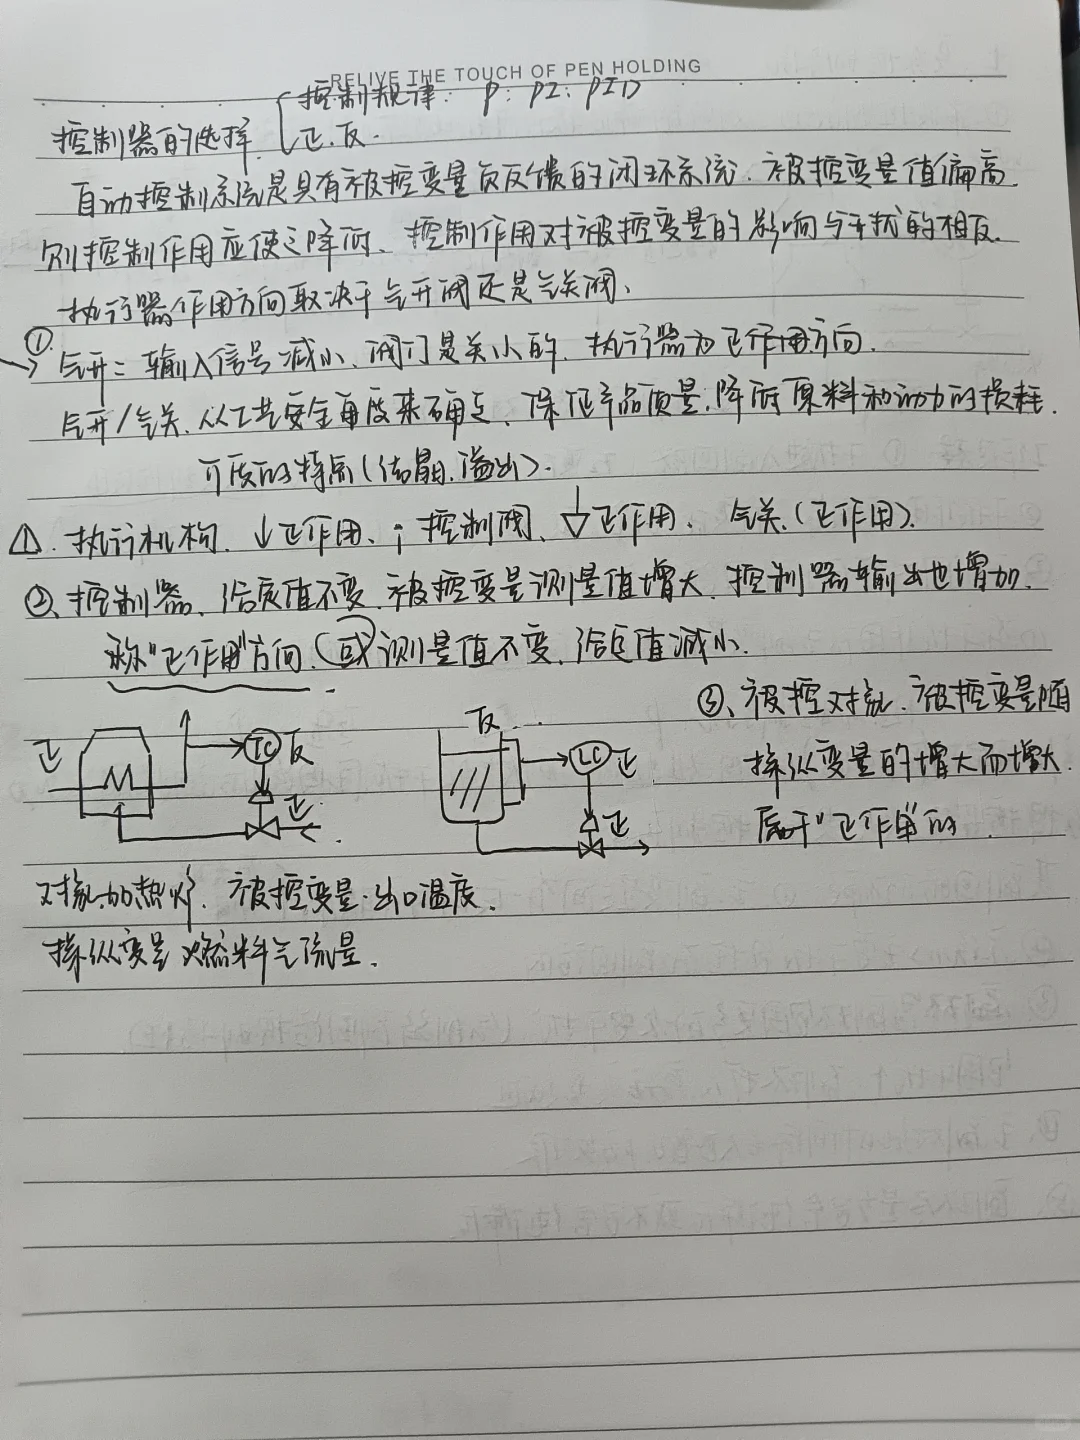 RELIVE THE TOUCH OF PEN HOLDING
控制规律: P: PI: PID
控制器的选择. 正.反.
自动控制系统是具有被控变量负反馈的闭环系统.被控变量值偏高.
则控制作用应使之降低.控制作用对被控变量的影响与干扰的相反.
执行器作用方向取决于气开阀还是气关阀、
①
气开:输入信号减小、阀门是关小的、执行器为正作用方向.
气开/气关.从工艺安全角度来确定、保证产品质量.降低原料和动力的损耗.
介质的特点(结晶.溢出).
⚠.执行机构.↓正作用、↑控制阀、↓▽正作用、气关.(正作用).
②、控制器、给定值不变.被控变量测量值增大、控制器输出也增加.
称"正作用"方向.(或)测量值不变、给定值减小.
③、被控对象.被控变量随
操纵变量的增大而增大.
属于"正作用"的.
正 TC 反 正.
反... LC 正 正
对象.加热炉.被控变量.出口温度.
操纵变量 燃料气流量.